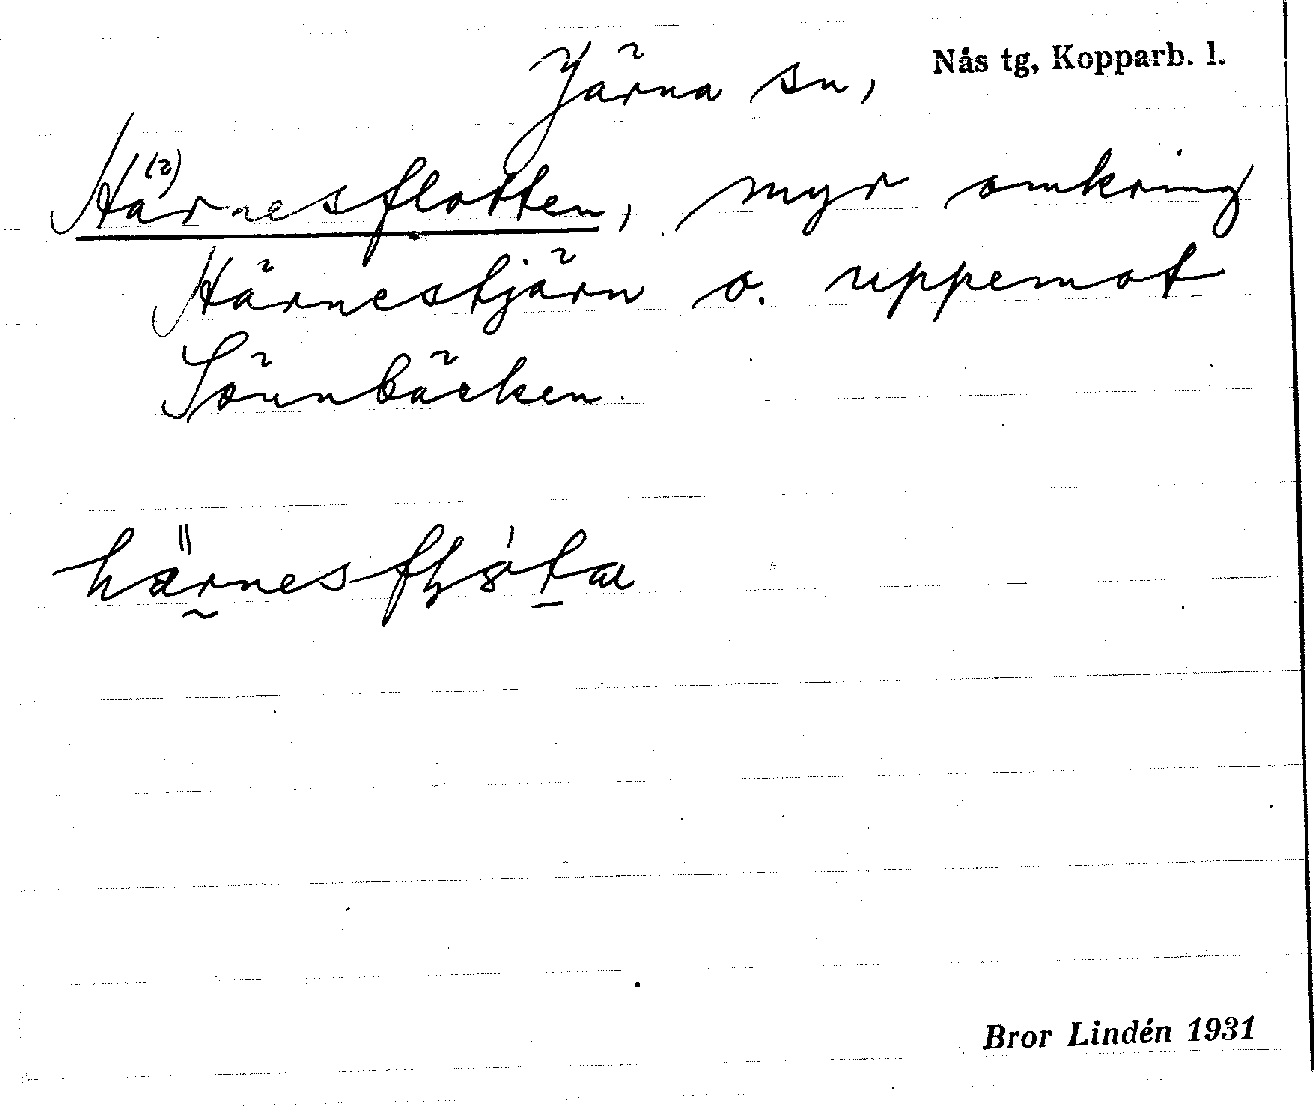 Järna sn, Nås tg, Kopparb. l.
Hä(?)rnesflotten, myr omkring
Härnestjärn o. uppemot
Sönnbäcken.
Bror Lindén 1931